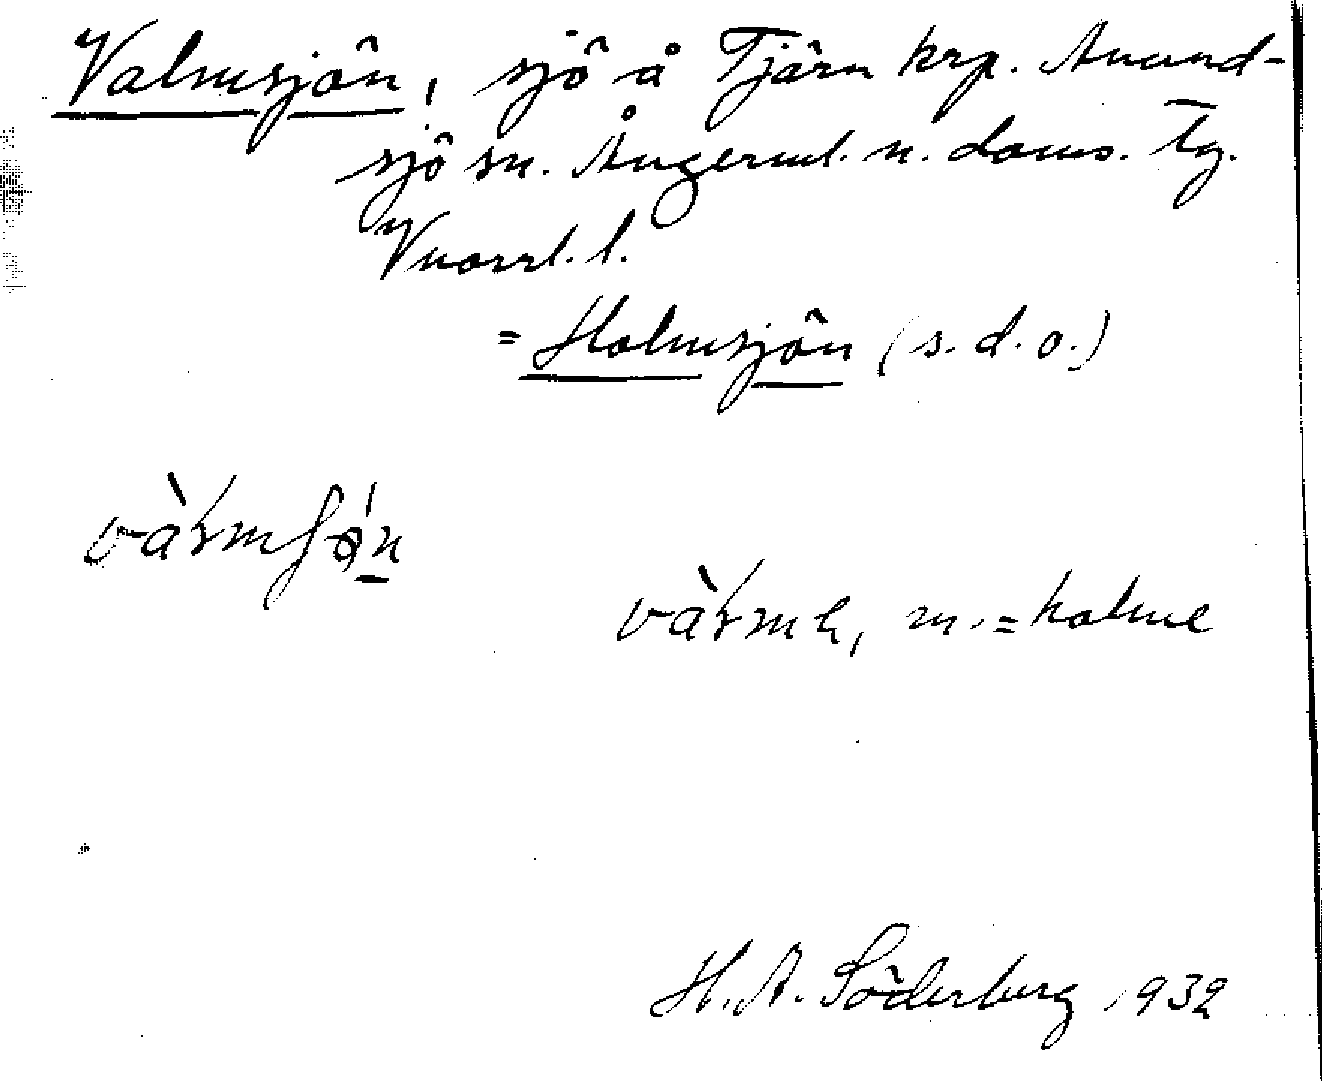 Valmsjön, sjö å Tjärn krp. Anund-
sjö sn. Ångerml. n. doms. tg.
Vnorrl. l.
= Holmsjön (s. d. o.)
m. = holme
H. A. Söderberg 1932